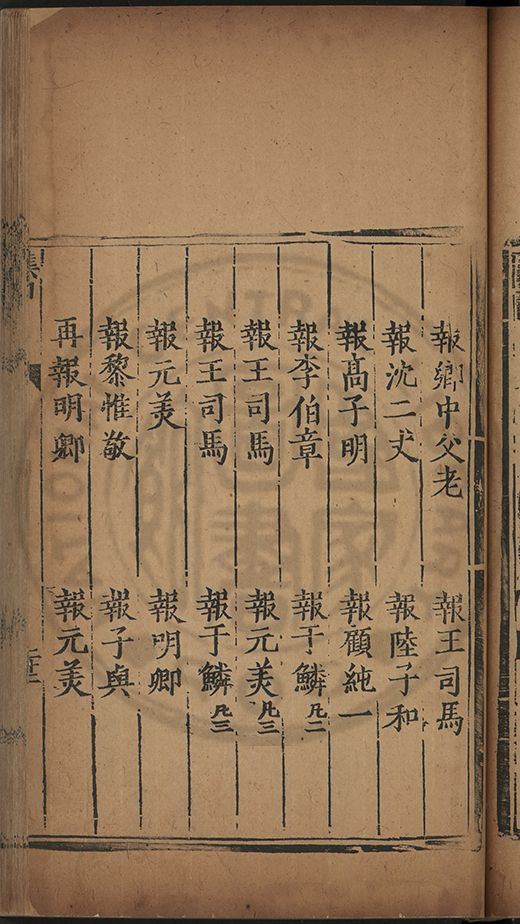 報鄉中父老　報王司馬
報沈二丈　報陸子和
報高子明　報顧純一
報李伯章　報于鱗凡二
報王司馬　報元美凡三
報王司馬　報于鱗凡三
報元美　報明卿
報黎惟敬　報子與
再報明卿　報元美